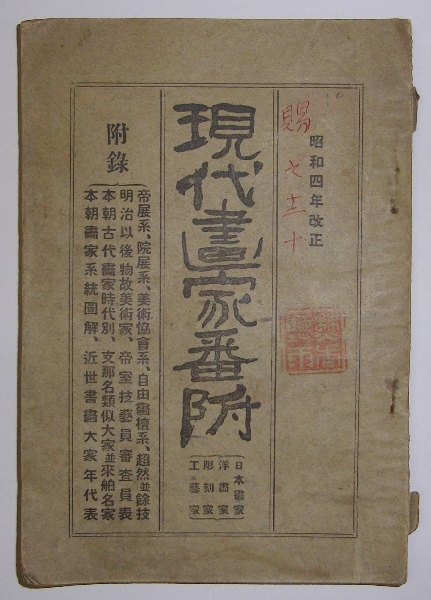 昭和四年改正
賜
七 十
現代畫家番附
日本畫家
洋畫家
彫刻家
工藝家
附錄
帝展系、院展系、美術協會系、自由畫檀系、超然並餘技
明治以後物故美術家、帝室技藝員審査員表
本朝古代畫家時代別、支那名類似大家並來舶名家
本朝畫家系統圖解、近世書畫大家年代表